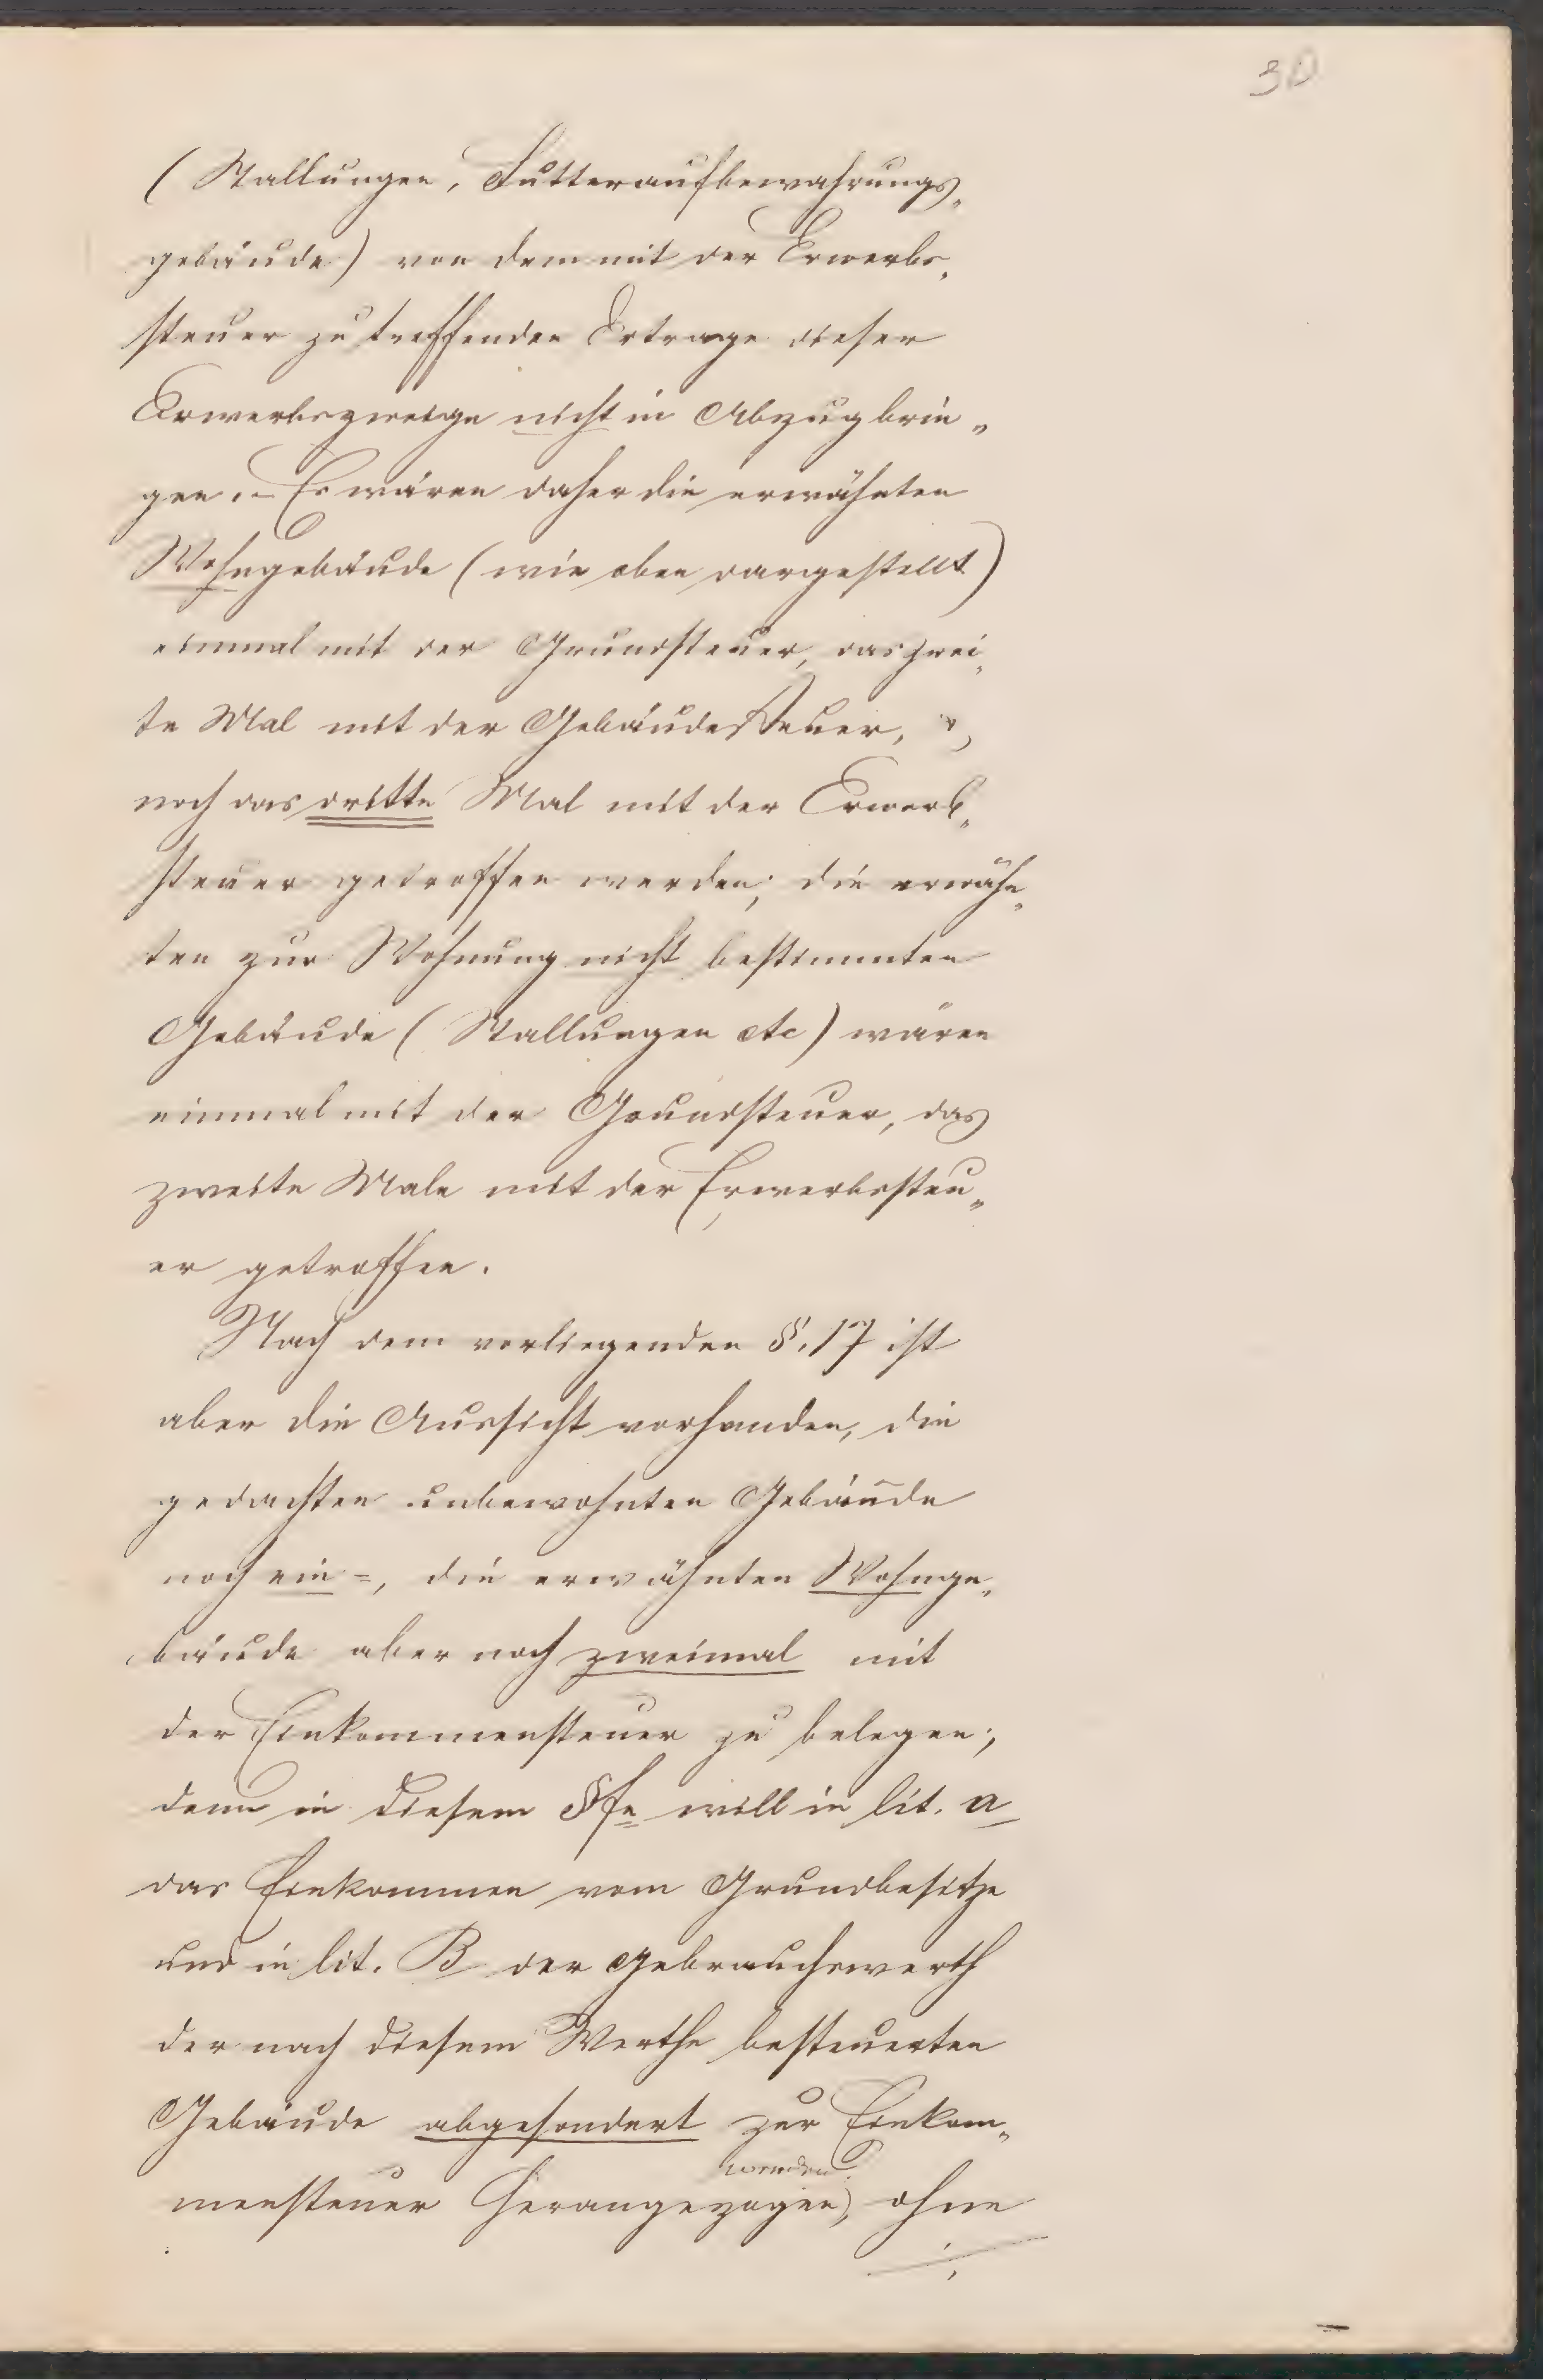 30
(Stallungen, Futteraufbewahrungs„
gebäude) von dem mit der Erwerbs„
steuer zu treffenden Ertrage dieser
Erwerbszweige nicht in Abzug brin„
gen. – Es wären daher die erwähnten
Wohngebäude (wie oben dargestellt)
einmal mit der Grundsteuer, das zwei„
te Mal mit der Gebäudesteuer, u,
noch das dritte Mal mit der Erwerb„
steuer getroffen werden; die erwähn„
ten zur Wohnung nicht bestimmten
Gebäude (Stallungen etc) wären
einmal mit der Grundsteuer, das
zweite Male mit der Erwerbssteu„
er getroffen.
Nach dem vorliegenden §. 17 ist
aber die Aussicht vorhanden, die
gedachten unbewohnten Gebäude
noch ein=, die erwähnten Wohnge„
bäude aber noch zweimal mit
der Einkommensteuer zu belegen;
denn in diesem §fe will in lit. a
das Einkommen vom Grundbesitze
und in lit. B der Gebrauchswerth
der nach diesem Werthe besteuerten
Gebäude abgesondert zur Einkom„
werden
mensteuer herangezogen, ohne